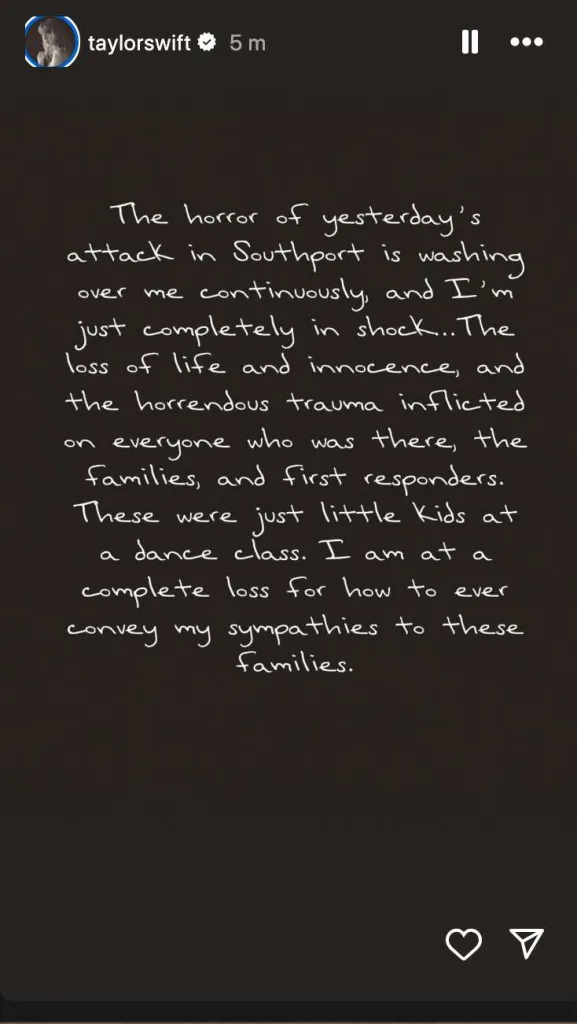 taylorswift 5 m
The horror of yesterday's
attack in Southport is washing
over me continuously, and I'm
just completely in shock...The
loss of life and innocence, and
the horrendous trauma inflicted
on everyone who was there, the
families, and first responders.
These were just little kids at
a dance class. I am at a
complete loss for how to ever
convey my sympathies to these
families.